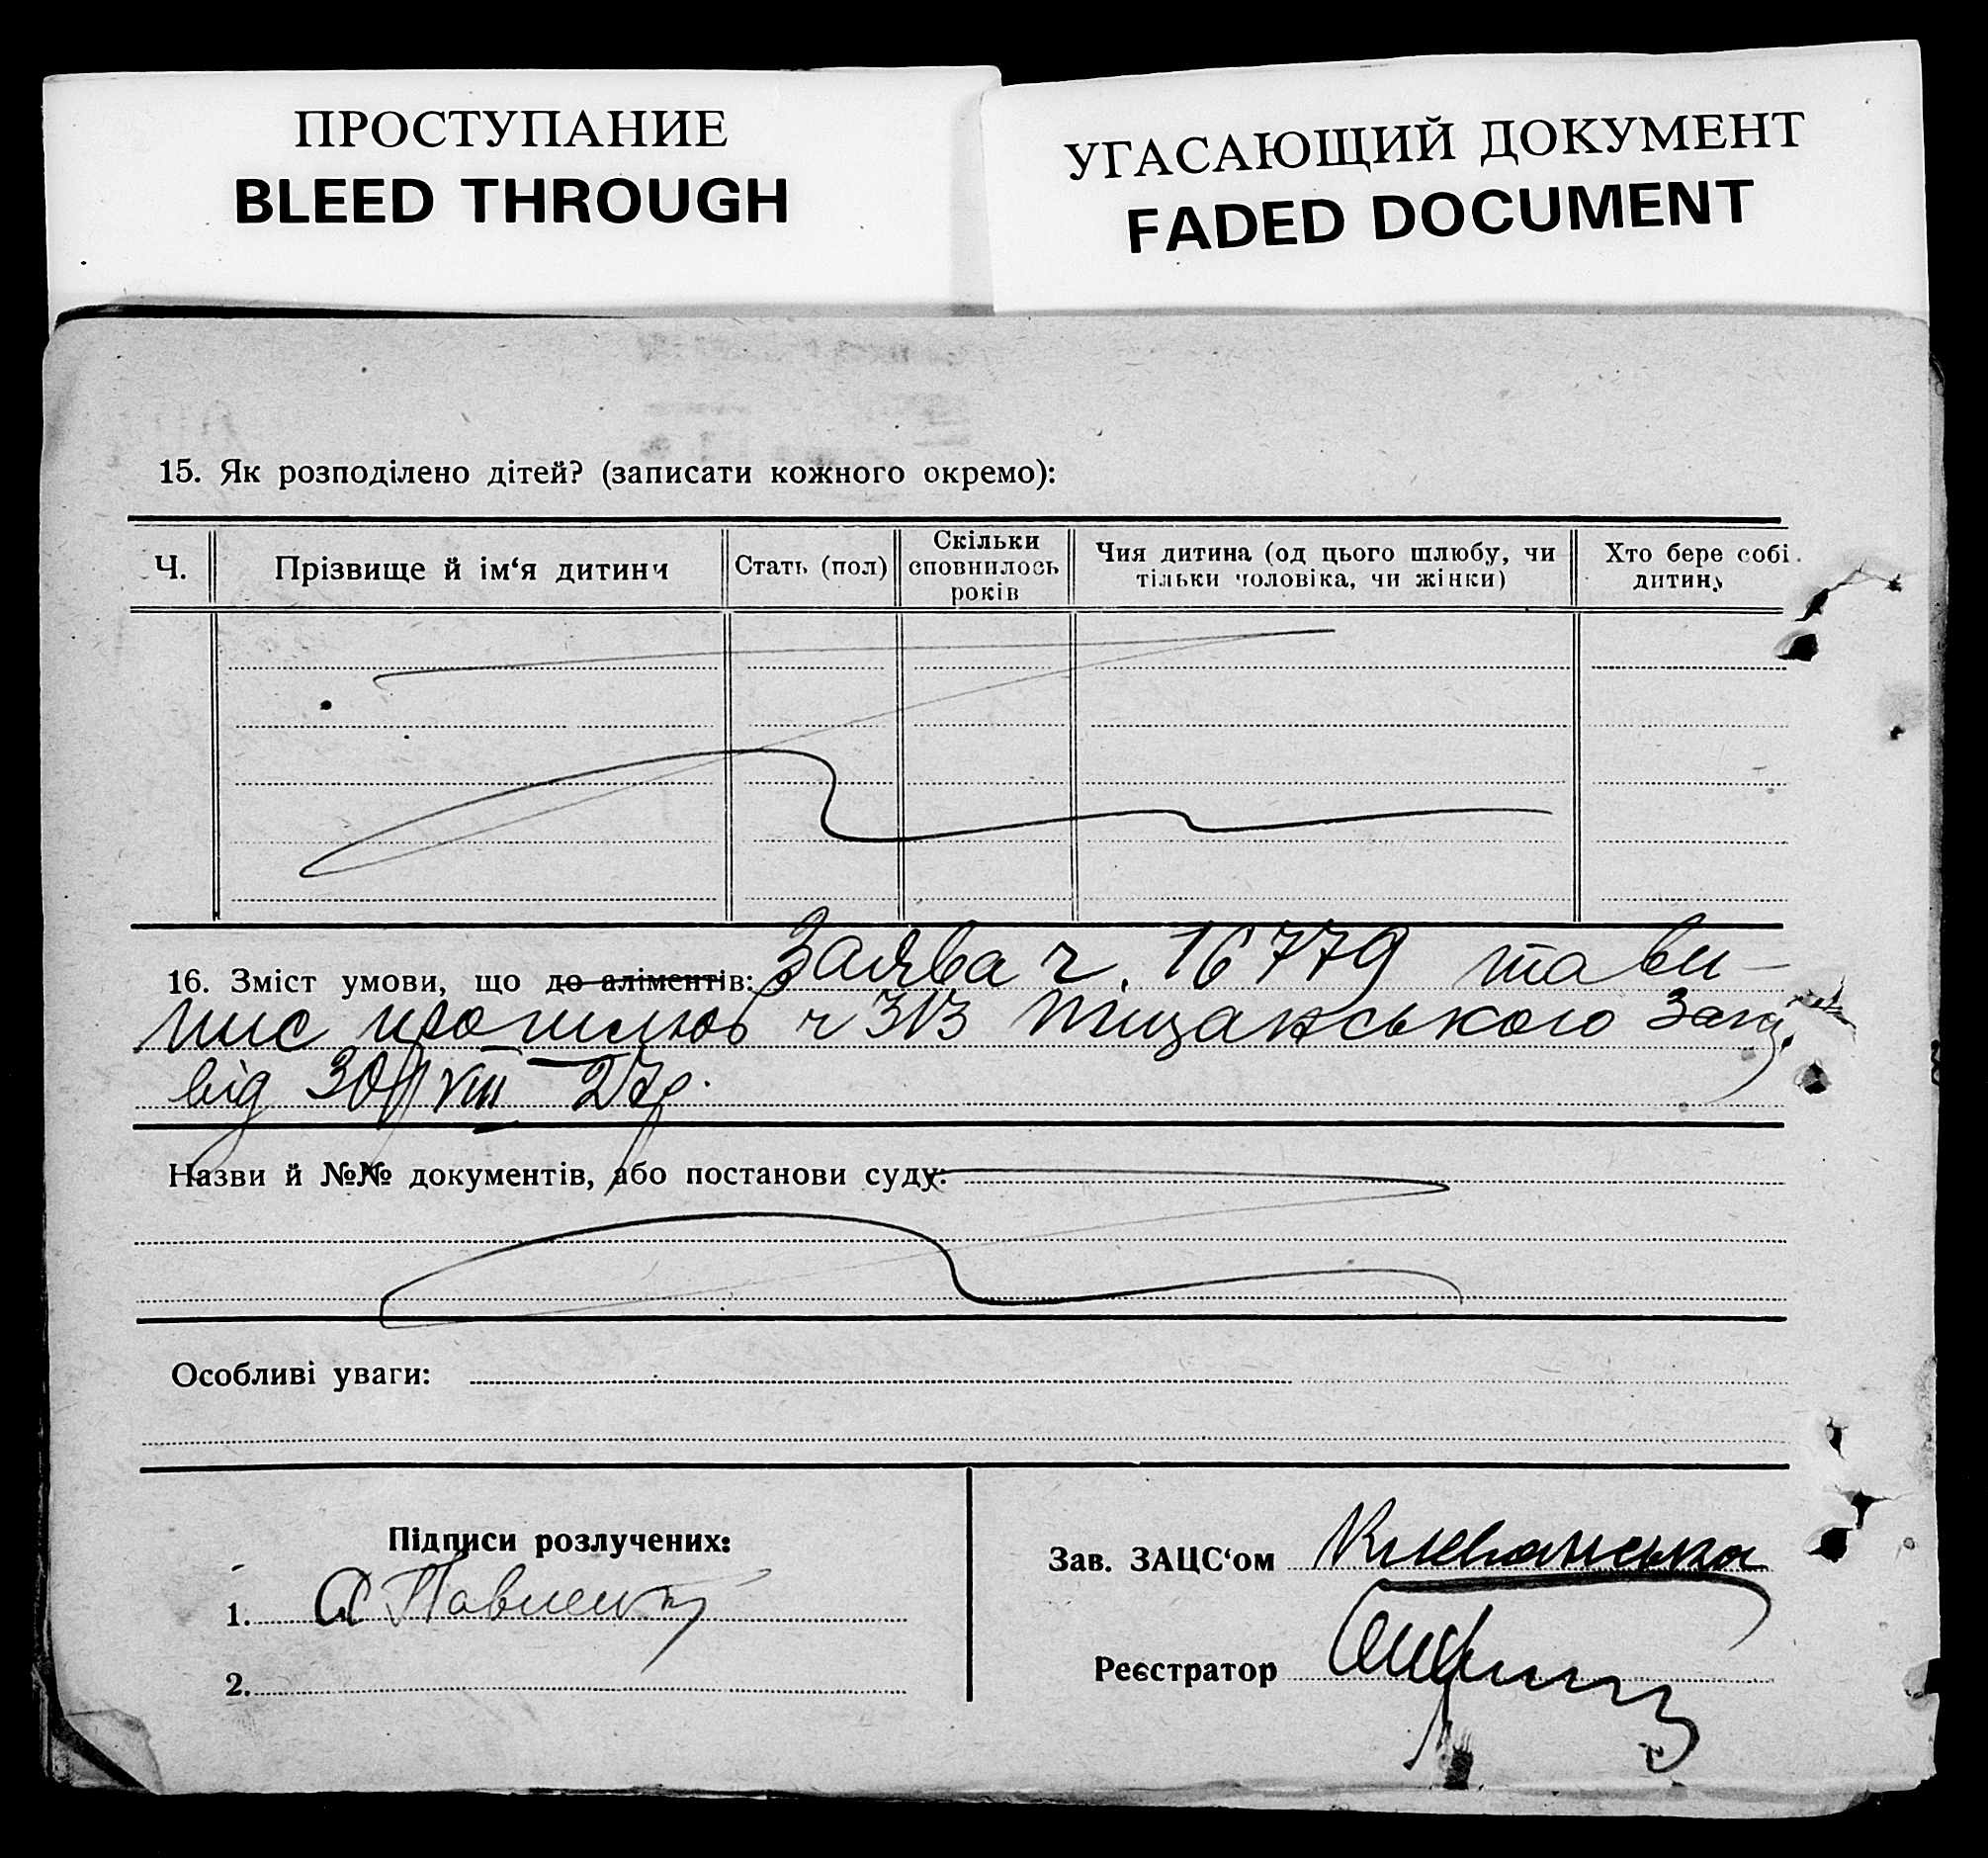 ПРОСТУПАНИЕ
BLEED THROUGH
УГАСАЮЩИЙ ДОКУМЕНТ
FADED DOCUMENT
15. Як розподілено дітей? (записати кожного окремо):
Ч.
Прізвище й ім‘я дитини
Стать (пол)
Скільки
сповнилось
років
Чия дитина (од цього шлюбу, чи
тільки чоловіка, чи жінки)
Хто бере собі
дитину
16. Зміст умови, що до аліментів: Заява ч. 16779 та ви-
пис про шлюб ч 313 Піщанського Загц.
від 30/VIII 27р.
Назви й №№ документів, або постанови суду:
Особливі уваги:
Підписи розлучених:
1.
2.
Зав. ЗАЦС‘ом
Реєстратор